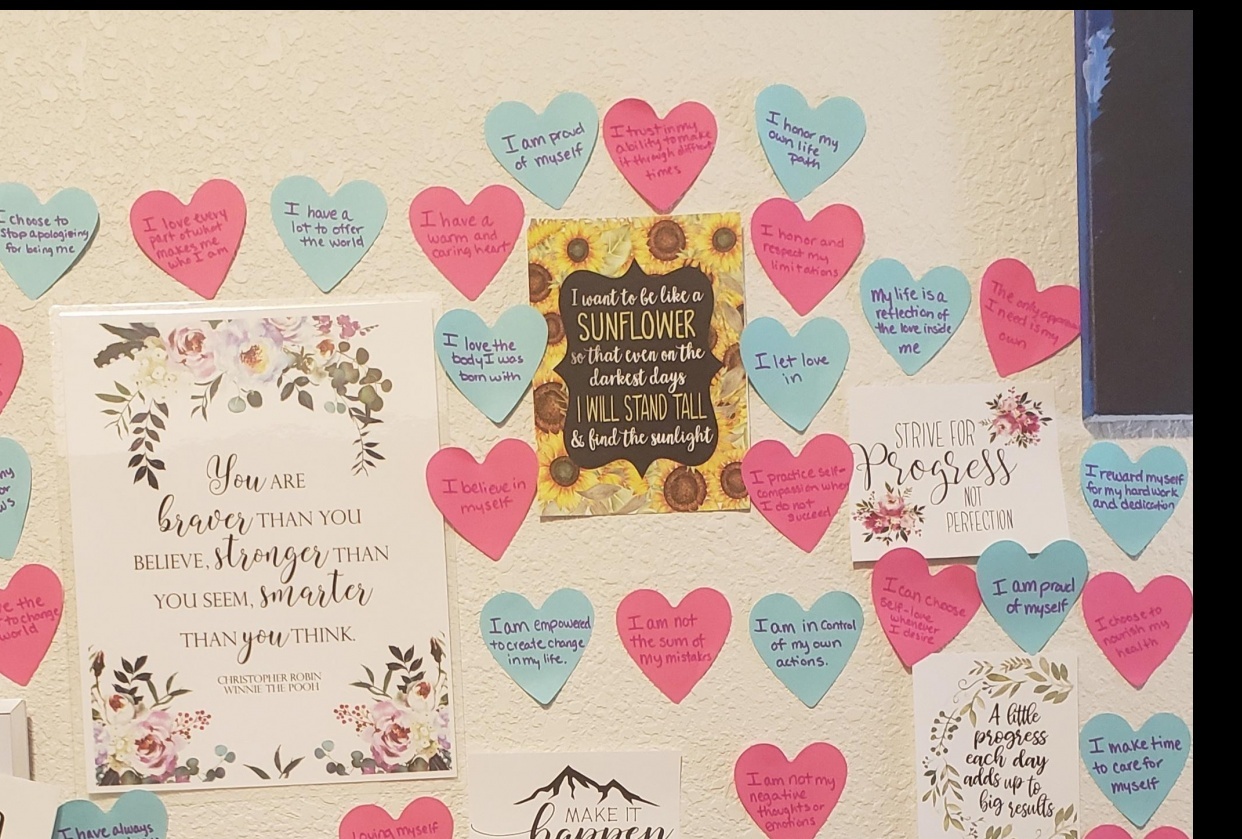 I am proud
of myself
I trust in my
ability to make
it through difficult
times
I honor my
own life
path
I choose to
stop apologizing
for being me
I love every
part of what
makes me
who I am
I have a
lot to offer
the world
I have a
warm and
caring heart
I honor and
respect my
limitations
My life is a
reflection of
the love inside
me
The only
I need is my
own
I love the
body I was
born with
I want to be like a
SUNFLOWER
so that even on the
darkest days
I WILL STAND TALL
& find the sunlight
I let love
in
You ARE
braver THAN YOU
BELIEVE, stronger THAN
YOU SEEM, smarter
THAN you THINK.
CHRISTOPHER ROBIN
WINNIE THE POOH
I believe in
myself
I practice self-
compassion when
I do not
succeed
STRIVE FOR
Progress
NOT
PERFECTION
I reward myself
for my hard work
and dedication
the
to change
world
I am Empowered
to create change
in my life.
I am not
the sum of
my mistakes
I am in control
of my own
actions.
I can choose
self-love
whenever
I desire
I am proud
of myself
I choose to
nourish my
health
A little
progress
each day
adds up to
big results
I make time
to care for
myself
MAKE IT
happen
I am not my
negative
thoughts or
emotions
I have always
Loving myself